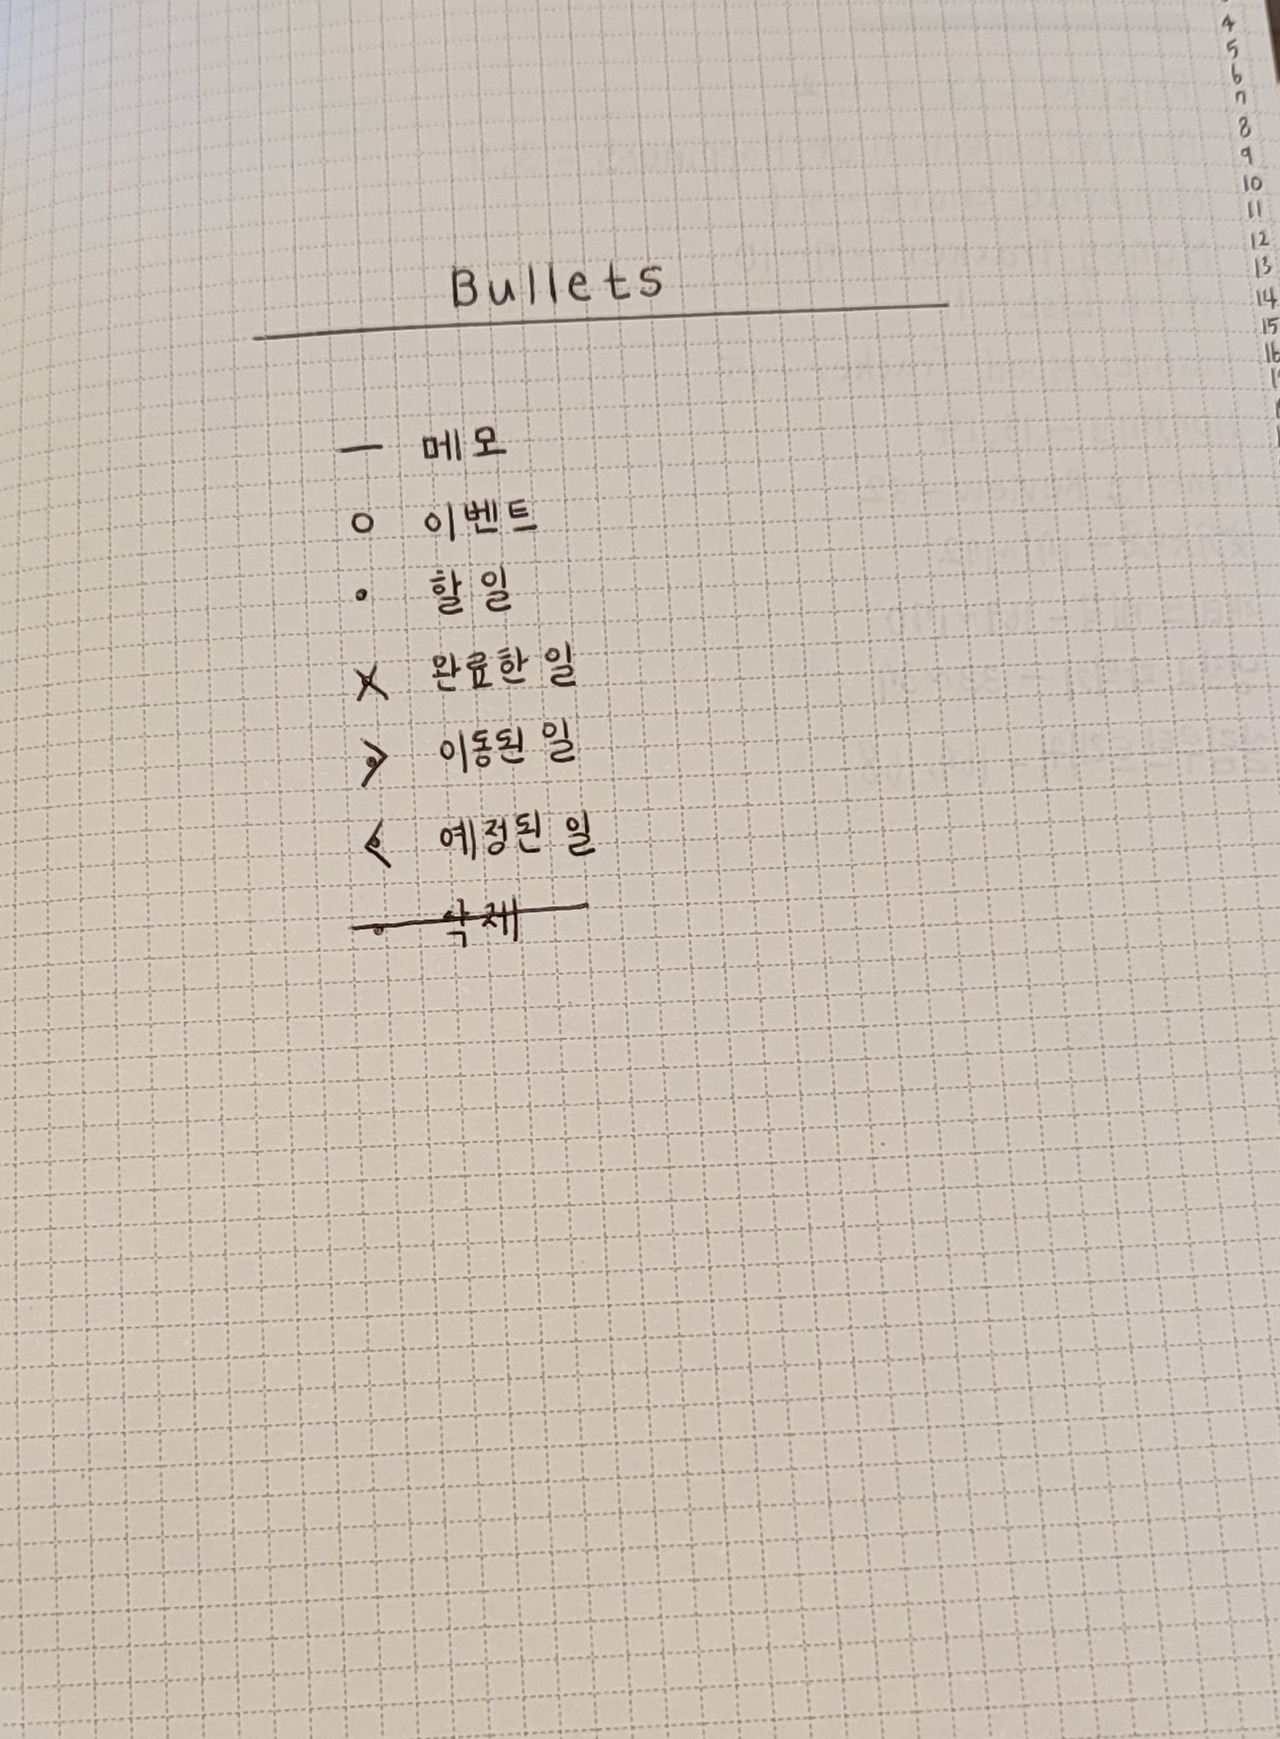 Bullets
— 메모
o 이벤트
• 할 일
x 완료한 일
> 이동된 일
< 예정된 일
• 삭제
4
5
6
7
8
9
10
11
12
13
14
15
16